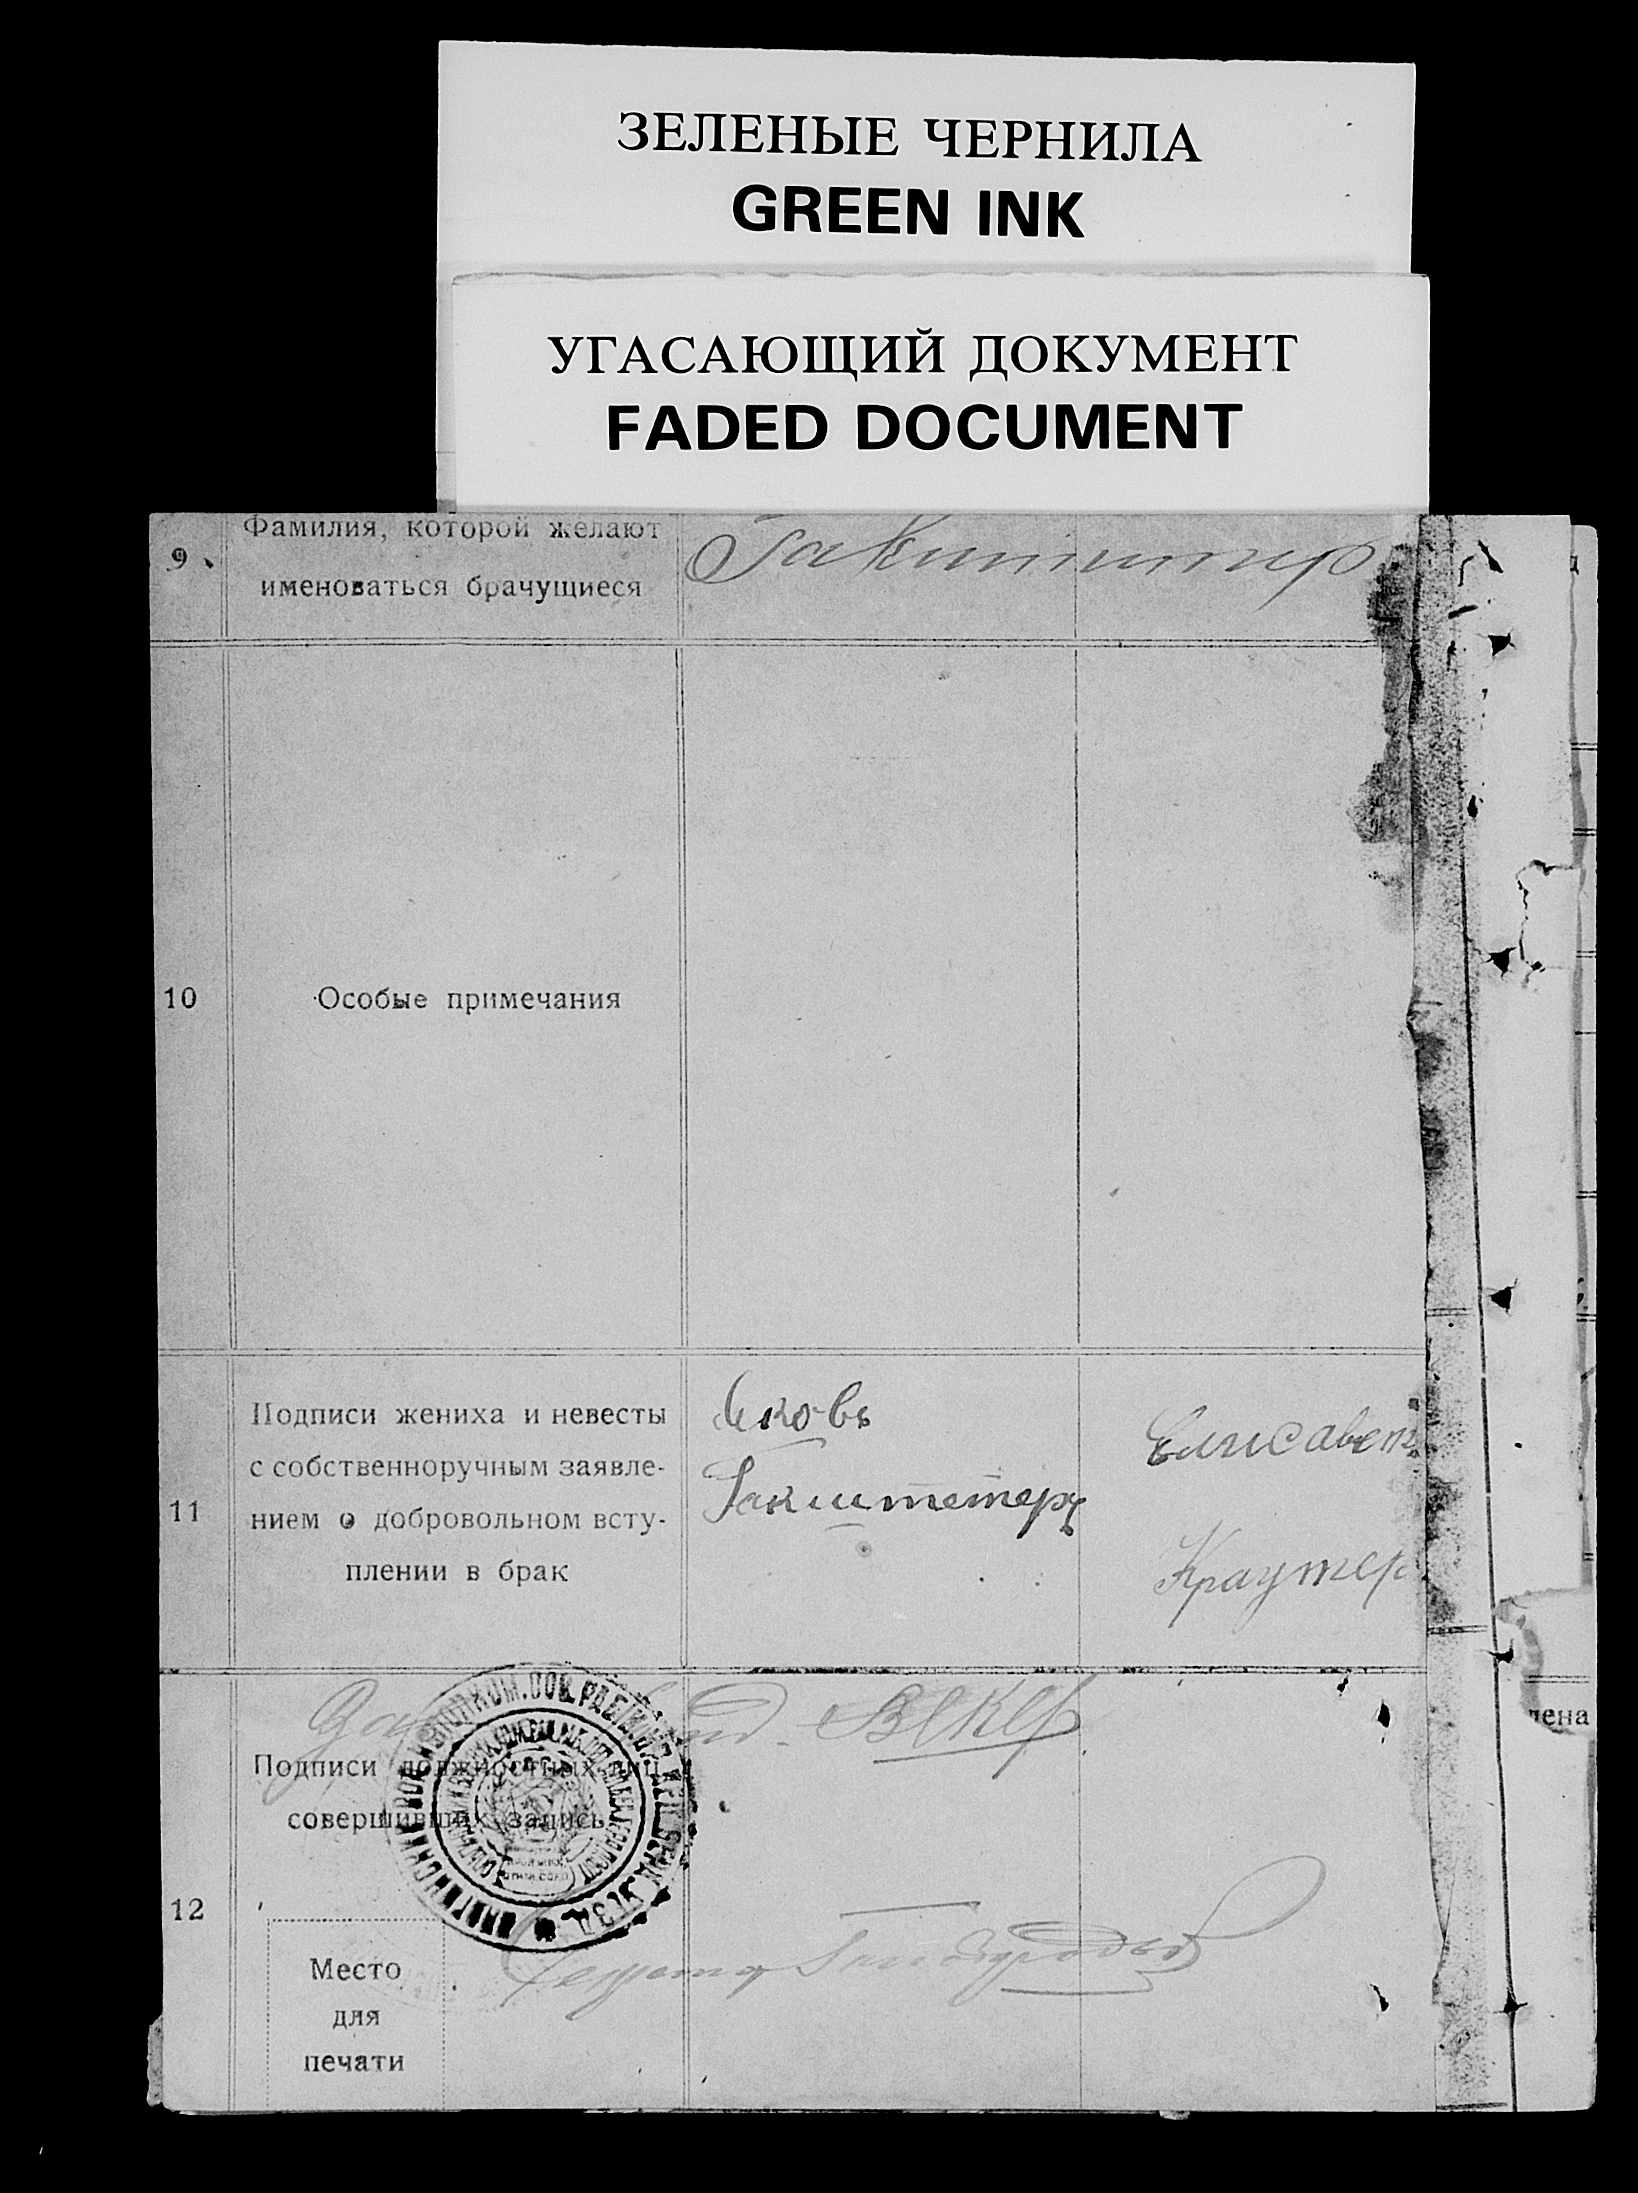 ЗЕЛЕНЫЕ ЧЕРНИЛА
GREEN INK
УГАСАЮЩИЙ ДОКУМЕНТ
FADED DOCUMENT
9
Фамилия, которой желают
именоваться брачущиеся
10
Особые примечания
11
Подписи жениха и невесты
с собственноручным заявле-
нием о добровольном всту-
плении в брак
Яковъ
Гакштетеръ
Елисавет
Краутер
12
Векер
Подписи должностных лиц,
совершивших запись
Место
для
печати
лена